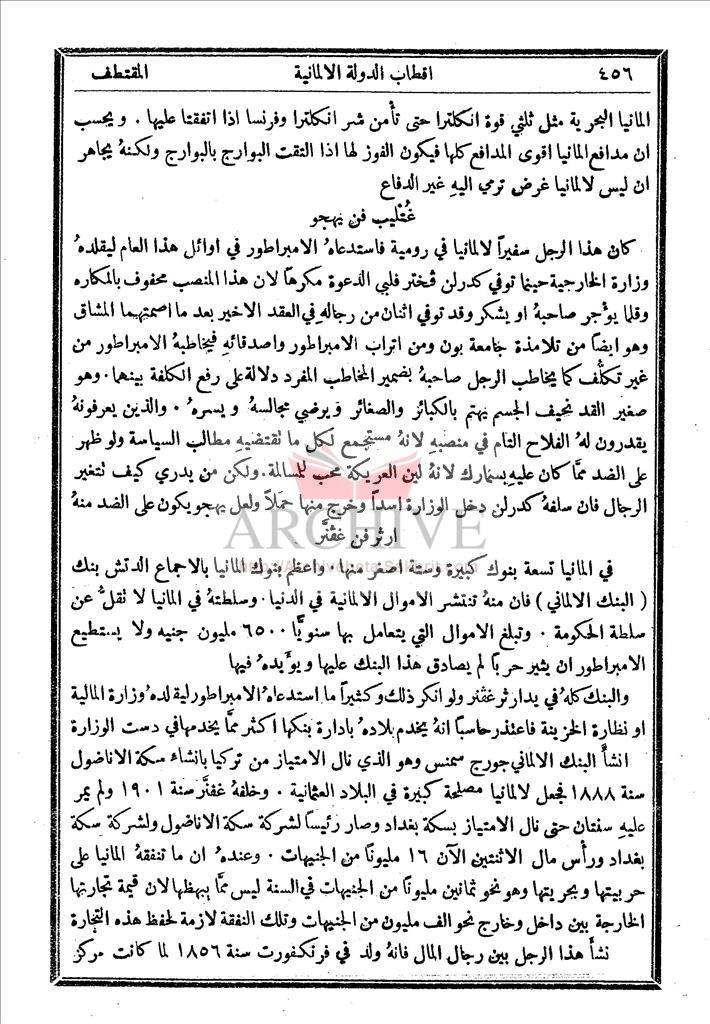 ٤٥٦ اقطاب الدولة الالمانية المقتطف
المانيا البحرية مثل ثلثي قوة انكلترا حتى تأمن شر انكلترا وفرنسا اذا اتفقتا عليها . ويحسب
ان مدافع المانيا اقوى المدافع كلها فيكون الفوز لها اذا التقت البوارج بالبوارج ولكنهُ يجاهر
ان ليس لالمانيا غرض ترمي اليهِ غير الدفاع
غُتْليب فن يهجو
كان هذا الرجل سفيراً لالمانيا في رومية فاستدعاهُ الامبراطور في اوائل هذا العام ليقلدهُ
وزارة الخارجية حينما توفي كدرلن ڤختر فلبي الدعوة مكرهاً لان هذا المنصب محفوف بالمكاره
وقلما يؤجر صاحبهُ او يشكر وقد توفي اثنان من رجالهِ في العقد الاخير بعد ما اصمتهما المشاق
وهو ايضاً من تلامذة جامعة بون ومن اتراب الامبراطور واصدقائهِ فيخاطبهُ الامبراطور من
غير تكلُّف كما يخاطب الرجل صاحبهُ بضمير المخاطب المفرد دلالة على رفع الكلفة بينهما . وهو
صغير القد نحيف الجسم يهتم بالكبائر والصغائر ويرضي مجالسهُ ويسرهُ . والذين يعرفونهُ
يقدرون لهُ الفلاح التام في منصبهِ لانهُ مستجمع لكل ما تقتضيهِ مطالب السياسة ولو ظهر
على الضد ممَّا كان عليهِ بسمارك لانهُ لين العريكة محب للمسالمة . ولكن من يدري كيف تتغير
الرجال فان سلفهُ كدرلن دخل الوزارة اسداً وخرج منها حمَلاً ولعل يهجو يكون على الضد منهُ
ARCHIVE
ارثر فن غڤنَّر
في المانيا تسعة بنوك كبيرة وستة اصغر منها . واعظم بنوك المانيا بالاجماع الدتش بنك
( البنك الالماني ) فان منهُ تنتشر الاموال الالمانية في الدنيا . وسلطتهُ في المانيا لا تقلُّ عن
سلطة الحكومة . وتبلغ الاموال التي يتعامل بها سنويًّا ٦٥٠٠ مليون جنيه ولا يستطيع
الامبراطور ان يثير حرباً لم يصادق هذا البنك عليها ويؤيدهُ فيها
والبنك كلهُ في يد ارثر غڤنر ولو انكر ذلك وكثيراً ما استدعاهُ الامبراطور ليقلدهُ وزارة المالية
او نظارة الخزينة فاعتذر حاسباً انهُ يخدم بلادهُ بادارة بنكها اكثر ممَّا يخدمها في دست الوزارة
انشأَ البنك الالماني جورج سمنس وهو الذي نال الامتياز من تركيا بانشاء سكة الاناضول
سنة ١٨٨٨ فجعل لالمانيا مصلحة كبيرة في البلاد العثمانية . وخلفهُ غڤنَّر سنة ١٩٠١ ولم يمر
عليهِ سنتان حتى نال الامتياز بسكة بغداد وصار رئيساً لشركة سكة الاناضول ولشركة سكة
بغداد ورأس مال الاثنتين الآن ١٦ مليوناً من الجنيهات . وعندهُ ان ما تنفقهُ المانيا على
حربيتها وبحريتها وهو نحو ثمانين مليوناً من الجنيهات في السنة ليس ممَّا يبهظها لان قيمة تجارتها
الخارجة بين داخل وخارج نحو الف مليون من الجنيهات وتلك النفقة لازمة لحفظ هذه التجارة
نشأ هذا الرجل بين رجال المال فانهُ ولد في فرنكفورت سنة ١٨٥٦ لما كانت مركز